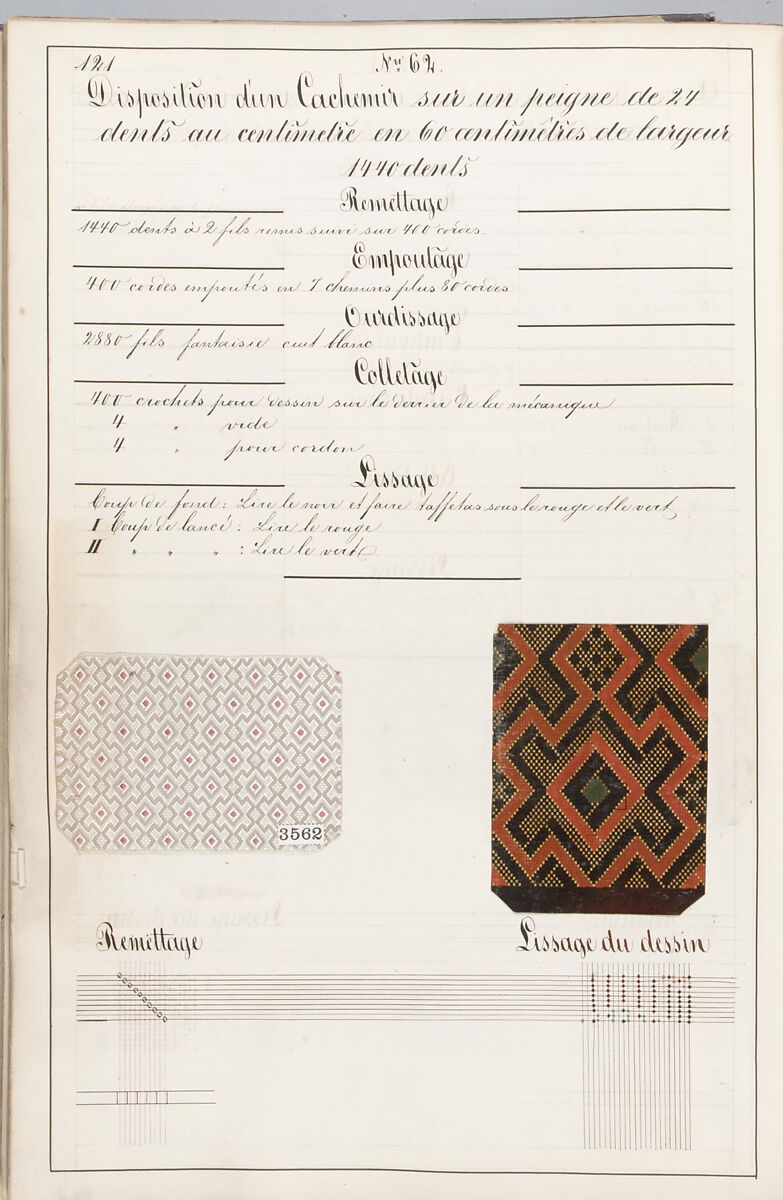 121
Nro 62.
Disposition d'un Cachemir sur un peigne de 24
dents au centimetre en 60 centimètres de largeur
1440 dents
Remettage
1440 dents à 2 fils remis suivi sur 400 cordes.
Empoutage
400 cordes empoutés en 7 chemins plus 80 cordes
Ourdissage
2880 fils fantaisie cuit blanc
Colletage
400 crochets pour dessin sur le derrier de la mécanique
4 " vide
4 " pour cordon
Lissage
Coup de fond: Lire le noir et faire taffetas sous le rouge et le vert
I Coup de lancé: Lire le rouge
II " " " : Lire le vert
3562
Remettage
Lissage du dessin